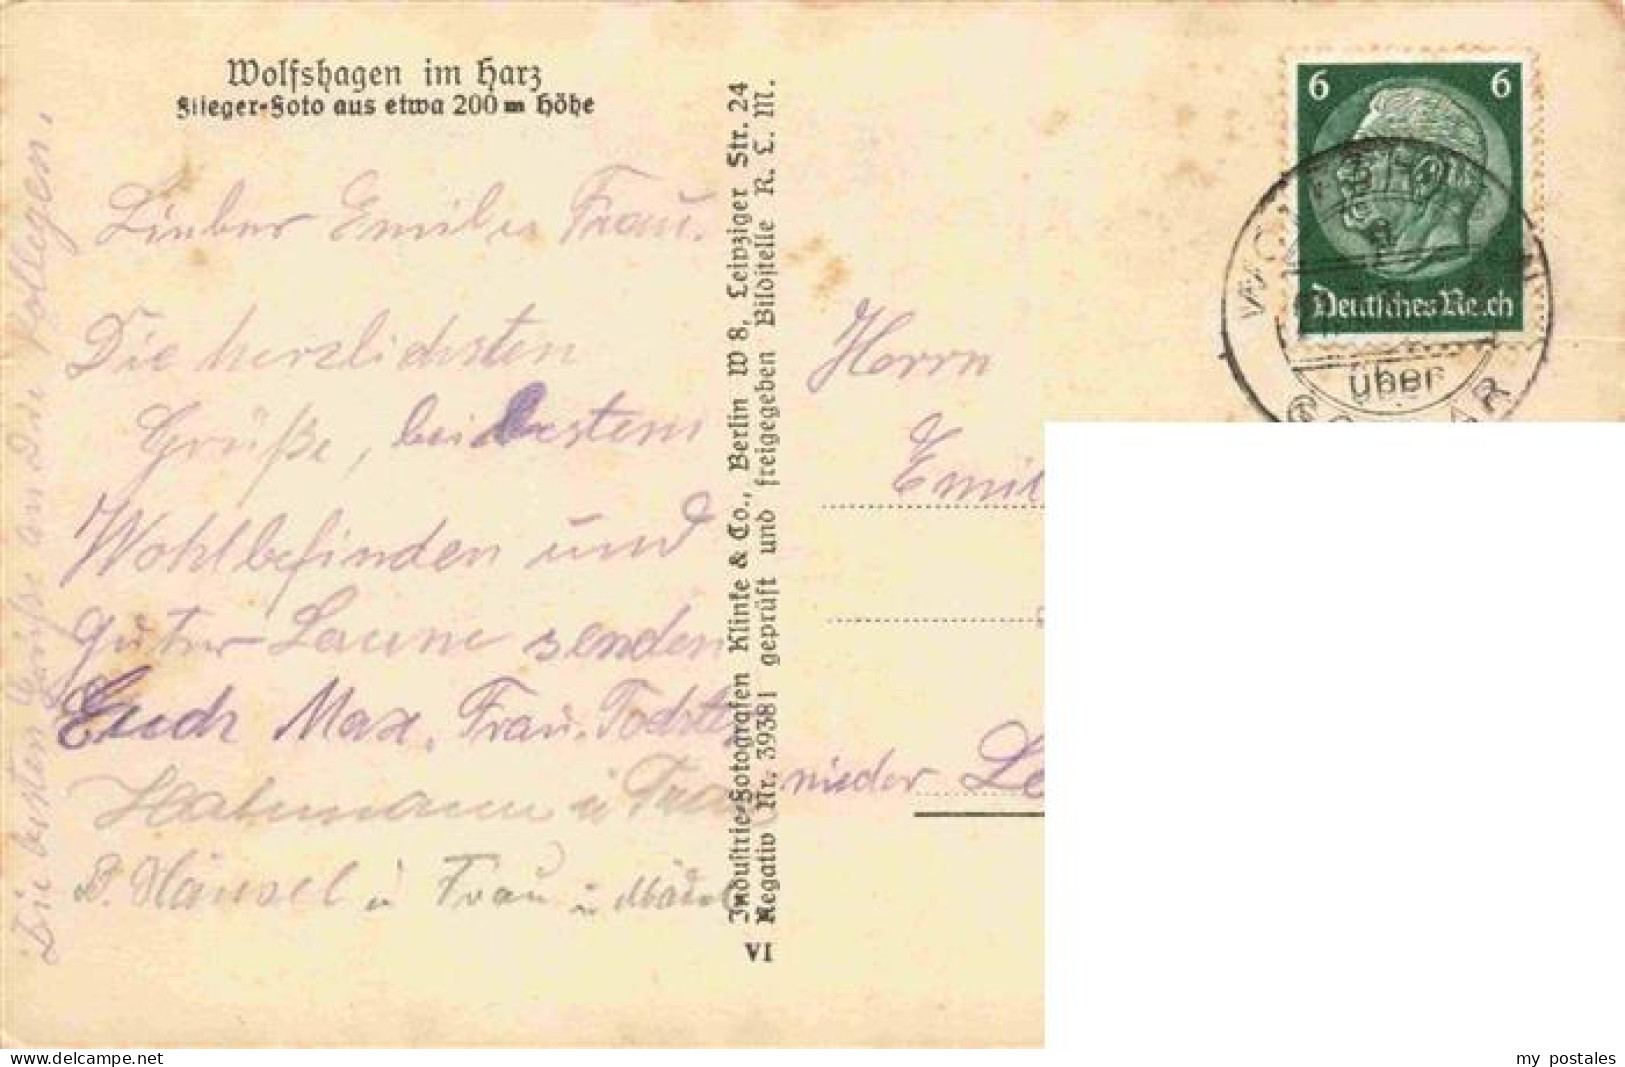 Wolfshagen im Harz
Flieger-Foto aus etwa 200 m Höhe
Lieber Emil u Frau.
Die herzlichsten
Grüße, bei bestem
Wohlbefinden und
guter Laune senden
Euch Max, Frau,
u
D. Hänsel u Frau u
Die besten Grüße an die Kollegen.
Industrie-Fotografen Klinke & Co., Berlin W 8, Leipziger Str. 24
Negativ Nr. 39381 geprüft und freigegeben Bildstelle R. L. M.
VI
6 6
Deutsches Reich
über
Herrn
Emil
nieder
my postales
www.delcampe.net